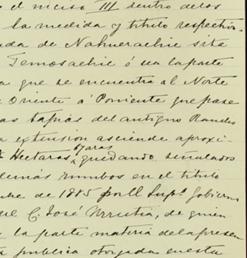 el inciso III dentro delos
la medida y titulo respectivo
ada de Nahuerachic site
Temosachic ó sea la parte
a que se encuentra al Norte
Oriente á Poniente que pase
as tapias del antiguo Rancho
a extension asciende aproxi
otaras
Hectaras quedando,
rumbos en el titulo
de 1885 por el Supº Gobierno
del C. José Urrutia, de quien
la parte materia dela presen
publica otorgada en esta